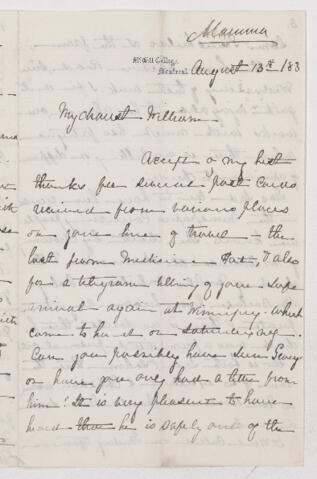 Mamma
McGill College,
Montreal.
August 13th /83
My dearest William
Accept a my best
thanks for several Post Cards
received from various places
on your line of travel - the
last from Medicine Hat, & also
for a telegram telling of your safe
arrival again at Winnipeg. which
came to hand on Saturday evg.
Can you possibly have seen
or have you only had a letter from
him! It is very pleasant to have
heard that he is safely out of the